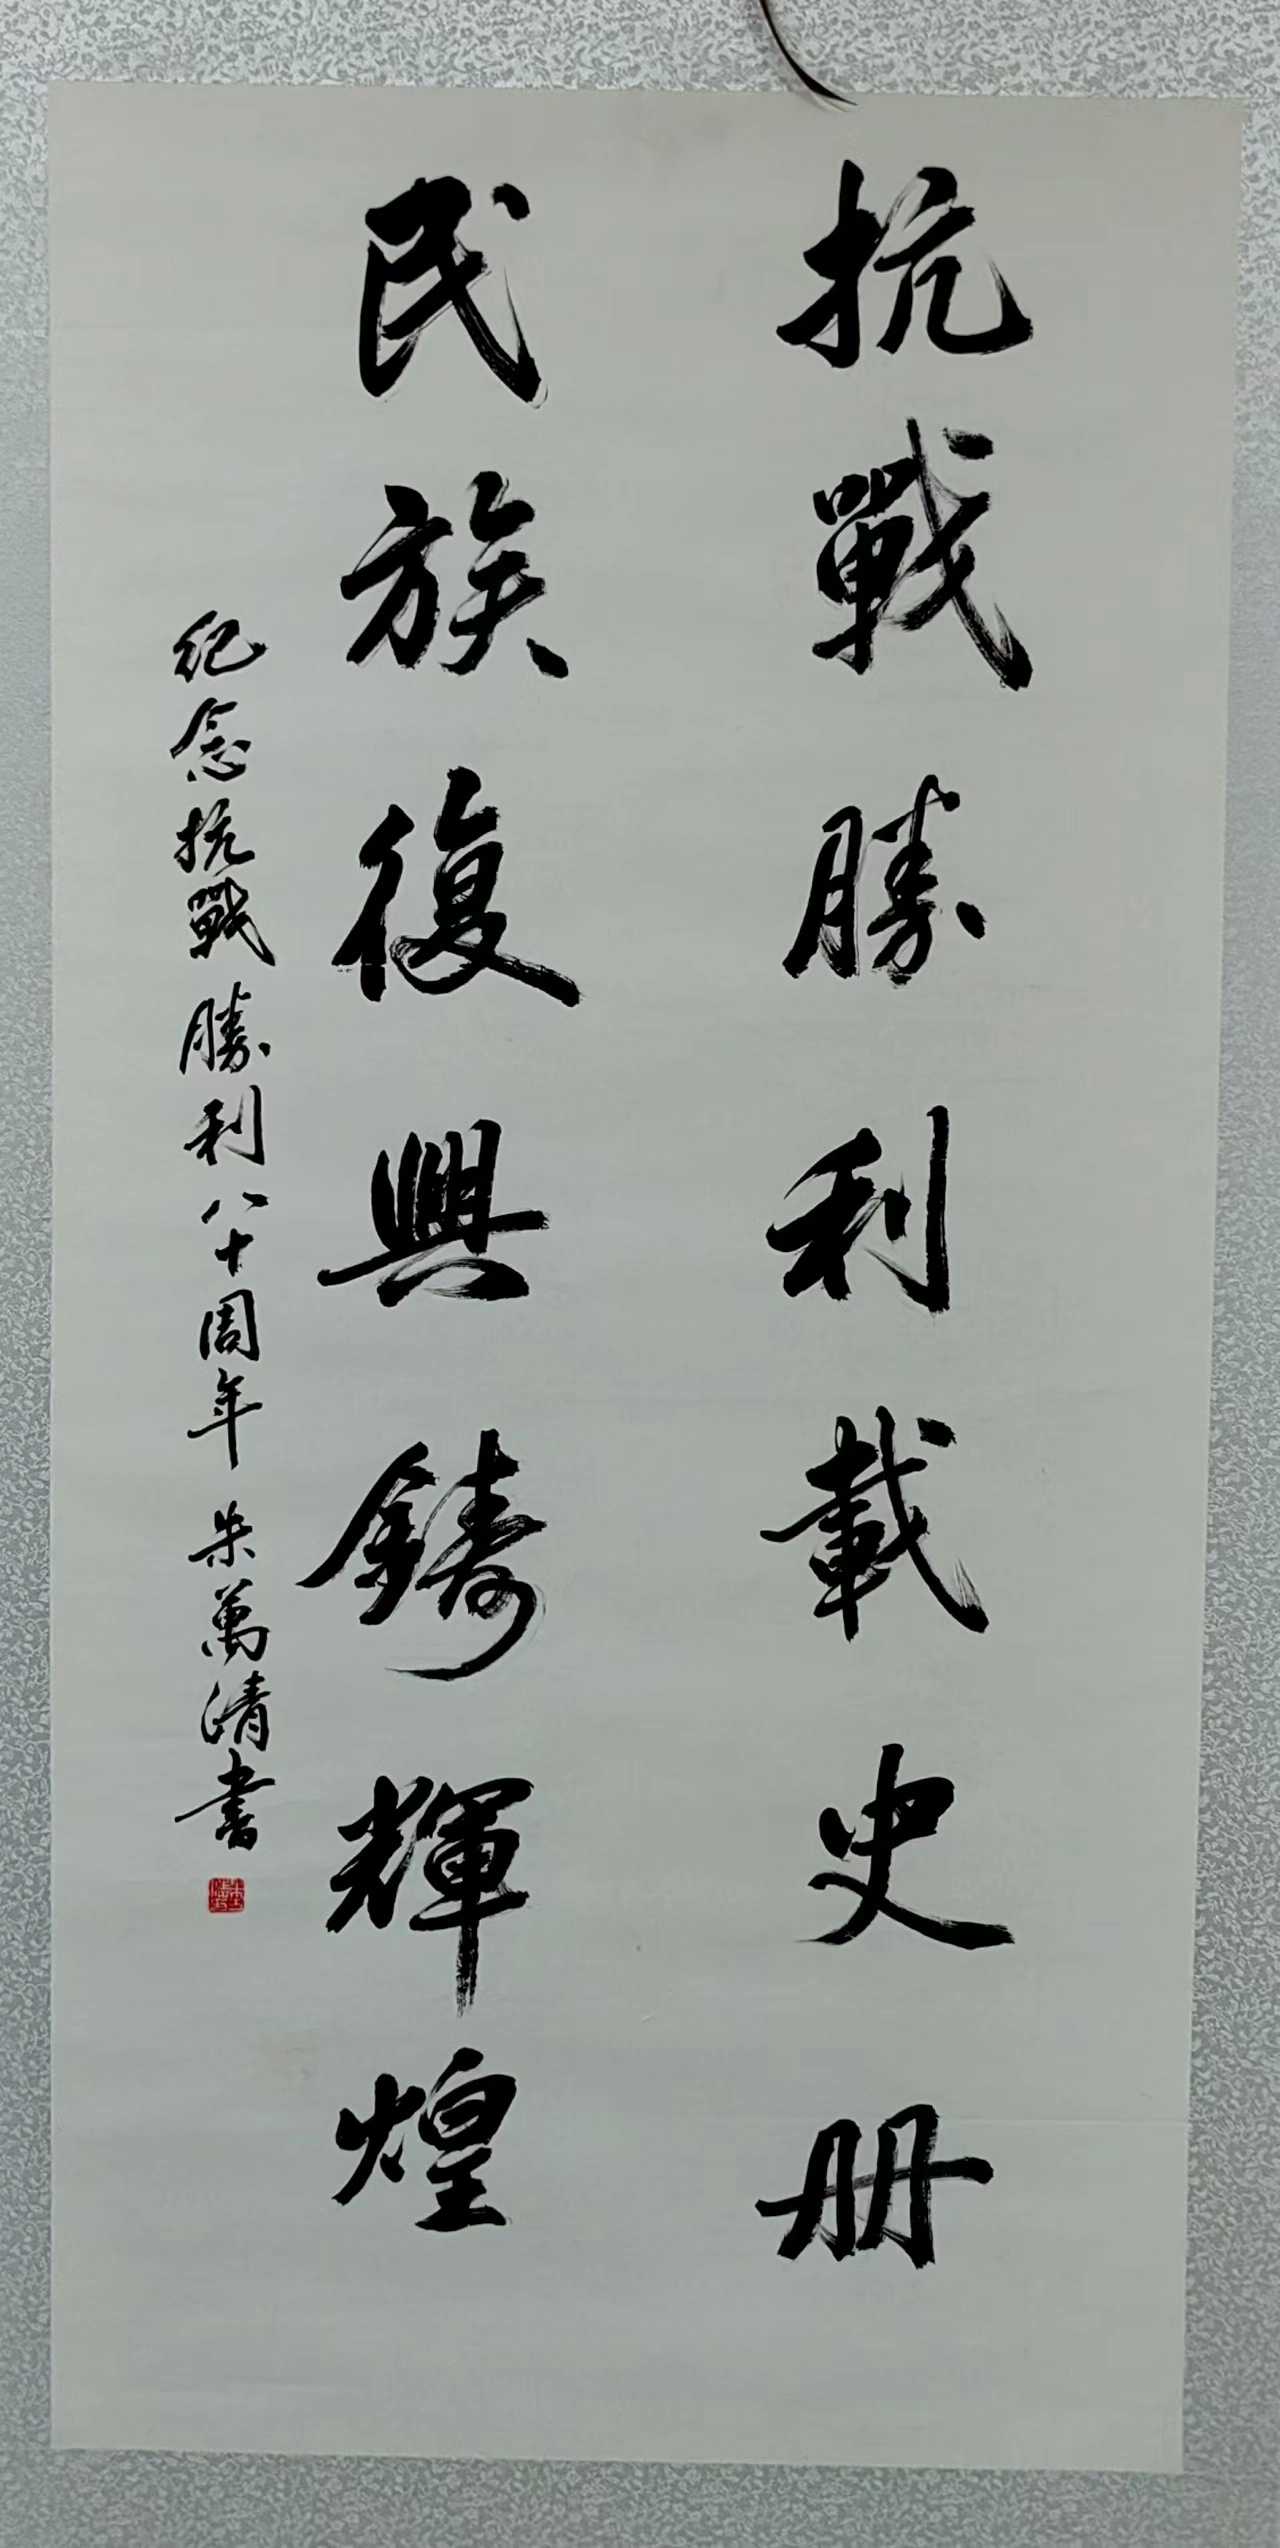 抗戰勝利載史册
民族復興鑄輝煌
紀念抗戰勝利八十周年 朱萬清書